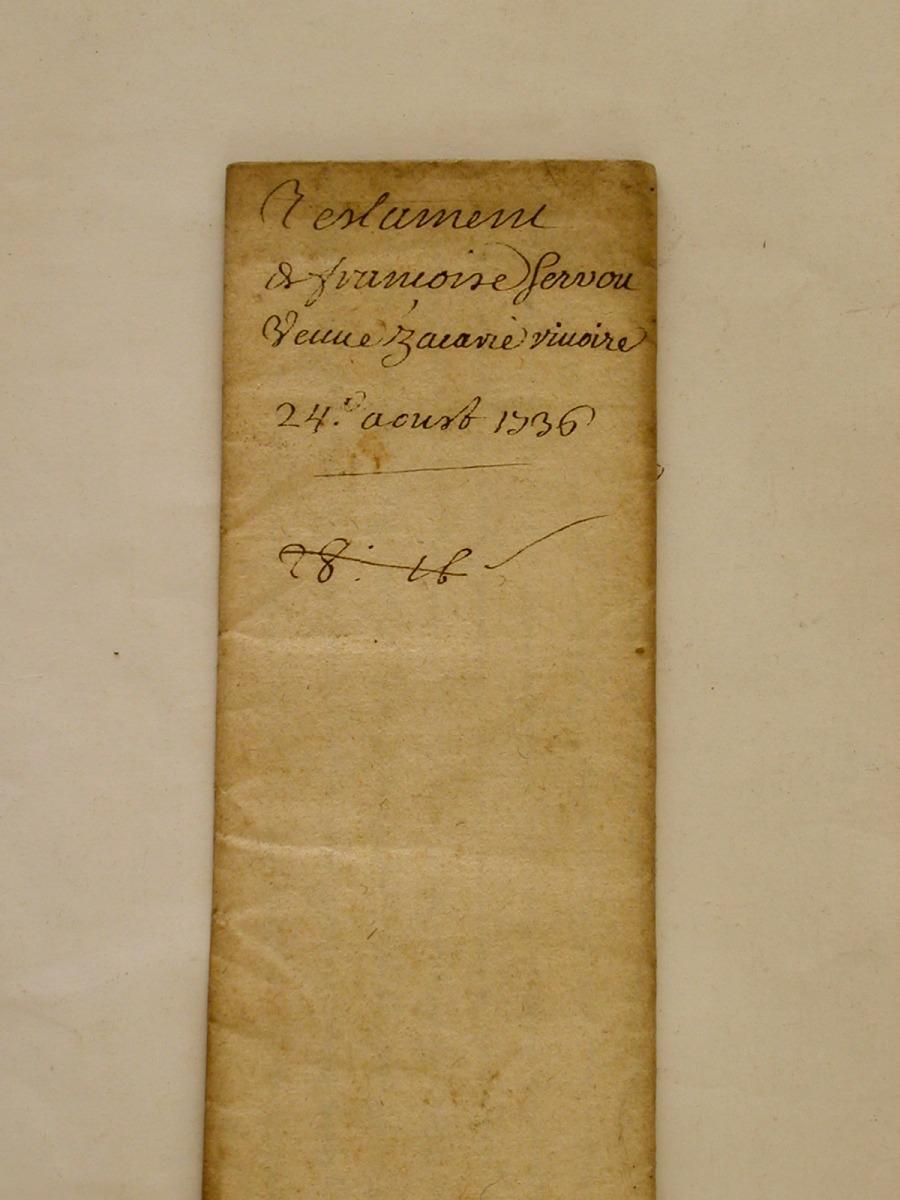 Testament
de francoise Servou
Veuue Zacarie viuoire
24.e aoust 1736
28. 16